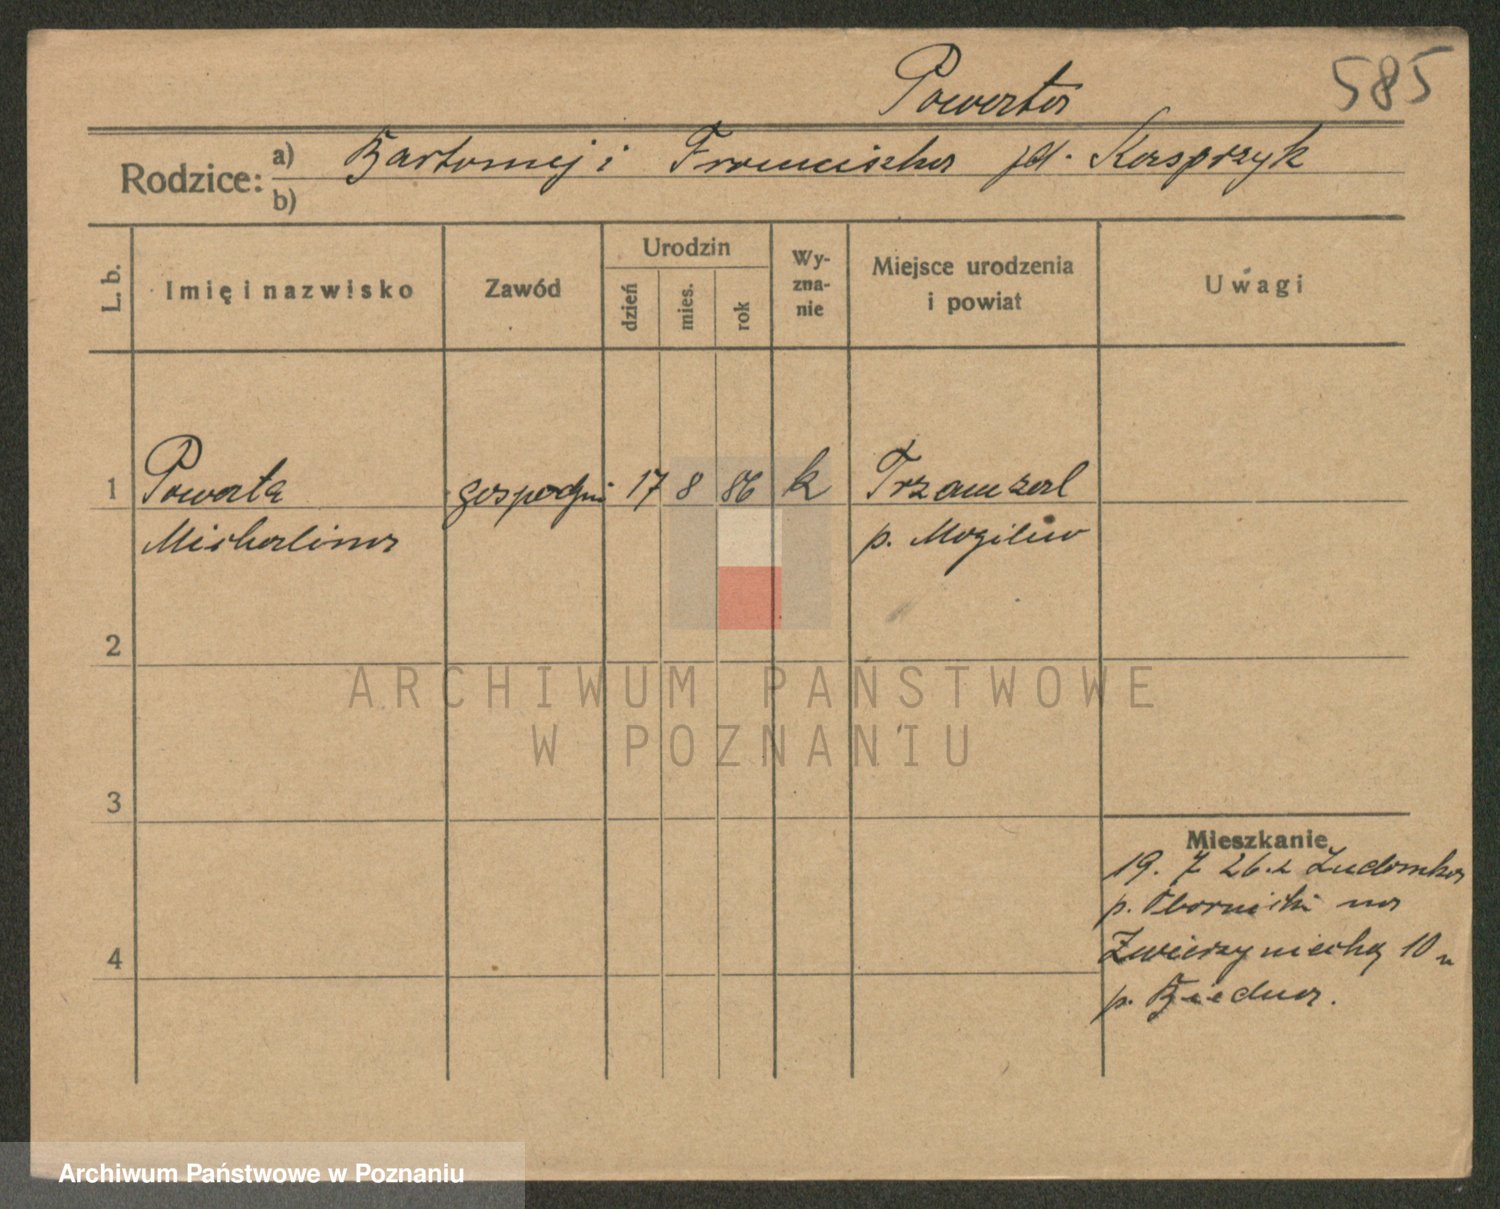 Powarta
585
Rodzice: a) Bartomej i Franciszka zd. Kasprzyk
b)
L. b.
Imię i nazwisko
Zawód
Urodzin
dzień
mies.
rok
Wy-
zna-
nie
Miejsce urodzenia
i powiat
Uwagi
1 Powarta gospodyni 17 8 86 k Trzamzal
Michalina p. Mogilno
2
3
4
Mieszkanie
19. 7 26. z Ludomka
p. Obornicki na
Zwierzyniecką 10 u
p. Biedna.
ARCHIWUM PAŃSTWOWE
W POZNANIU
Archiwum Państwowe w Poznaniu